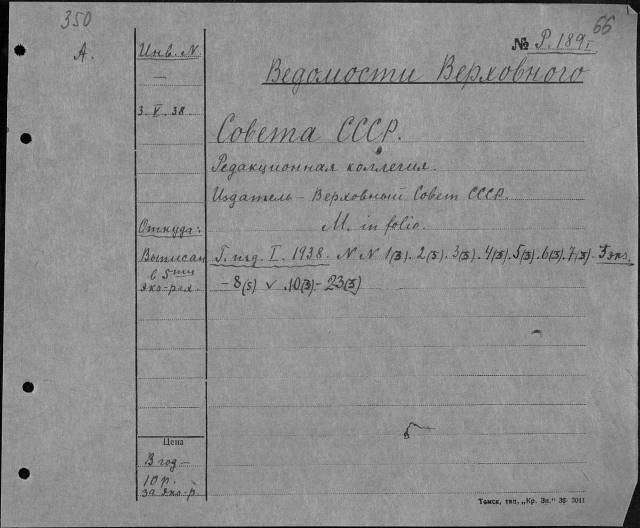 350
66
А.
Инв. N.
№ Р.189г
—
Ведомости Верховного
3.V.38
Совета СССР.
Редакционная коллегия.
Издатель – Верховный Совет СССР.
Откуда:
М. in folio.
Выписан
в 5ти
экз-рах.
Г. изд. I. 1938. N N 1(5). 2(5). 3(5). 4(5). 5(5). 6(5). 7(5). 5 экз.
– 8(5) v 10(5) – 23(5)
Цена
В год –
10 р.
за экз-р.
Томск, тип. „Кр. Зн.“ 36 2011